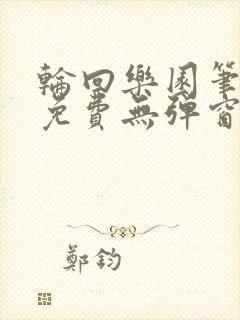 輪回樂園筆
免費無彈窗
鄭鈞